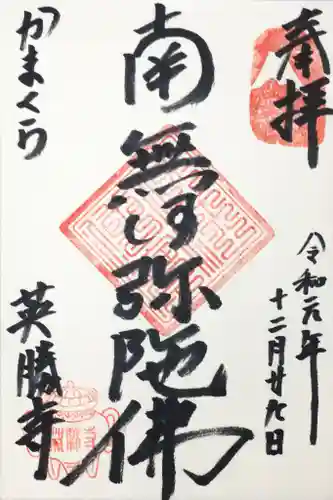 奉拝
令和元年
十二月廿九日
南無阿弥陀佛
かまくら
英勝寺